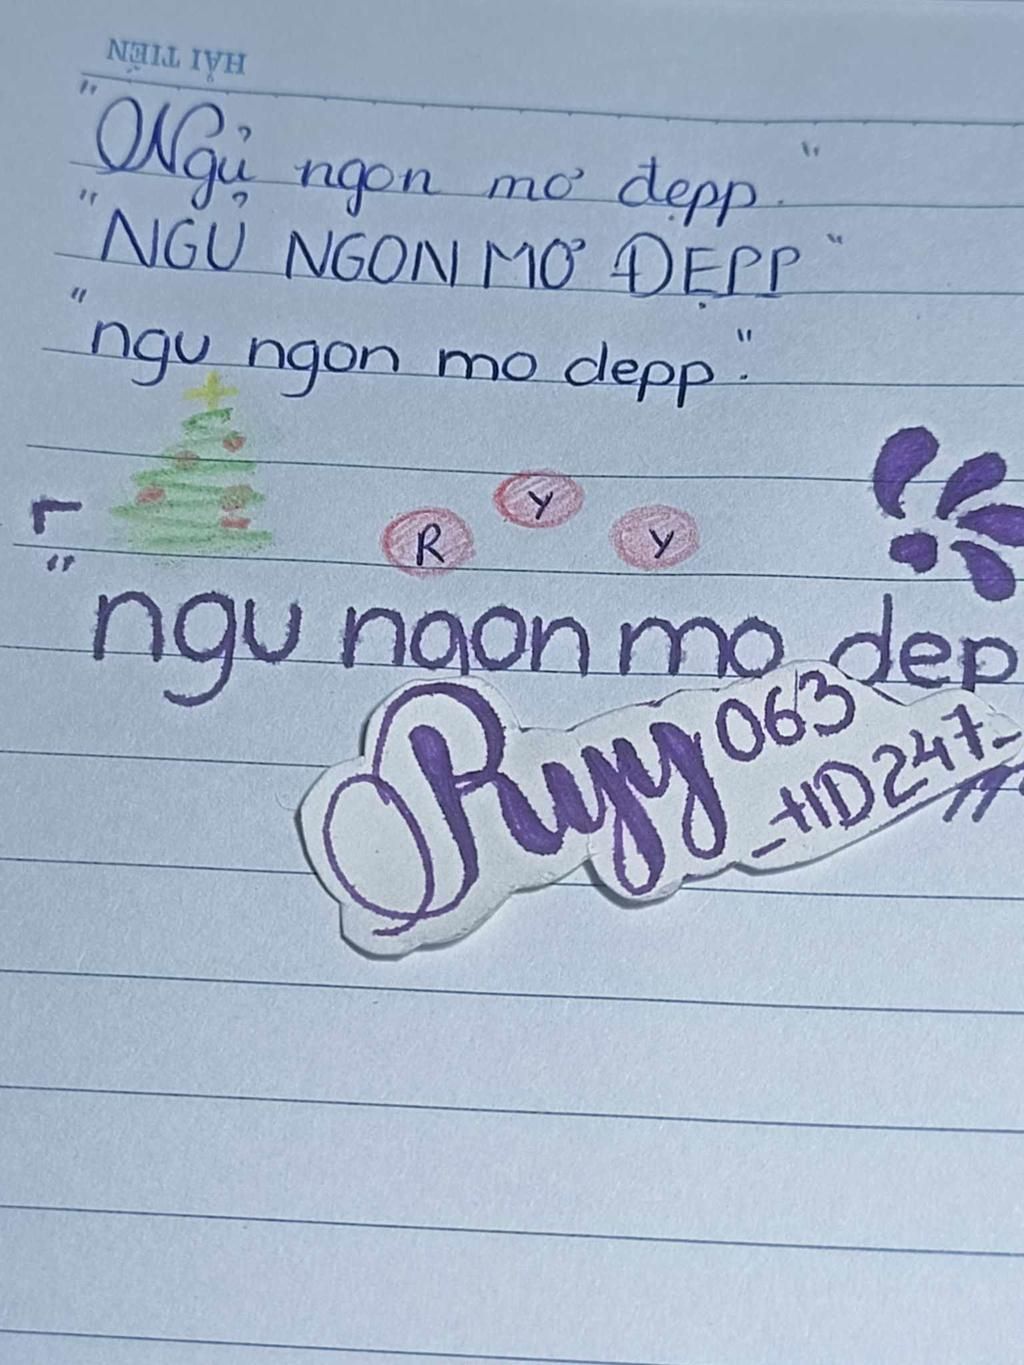 HẢI TIẾN
"Ngủ ngon mơ đẹpp."
"NGỦ NGON MƠ ĐẸPP"
"ngu ngon mo depp."
R Y Y
"ngu ngon mo dep
Ryy 063
_HD247_"